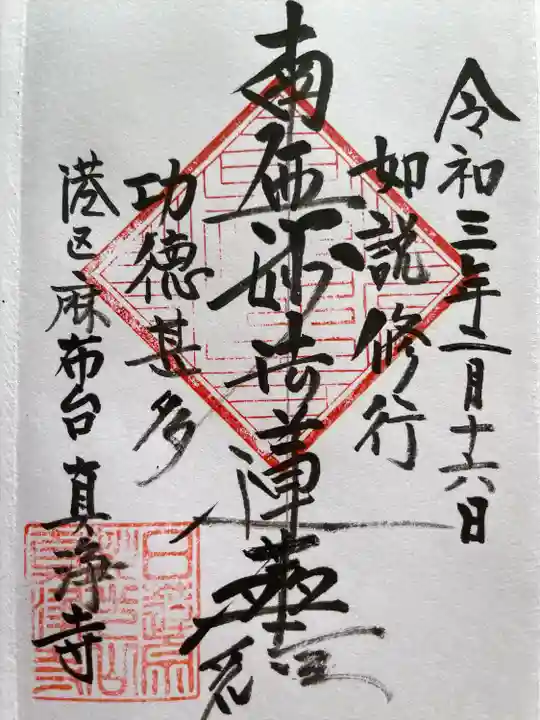 令和三年二月十六日
如説修行
南無妙法蓮華経
功徳甚多
港区麻布台 真浄寺